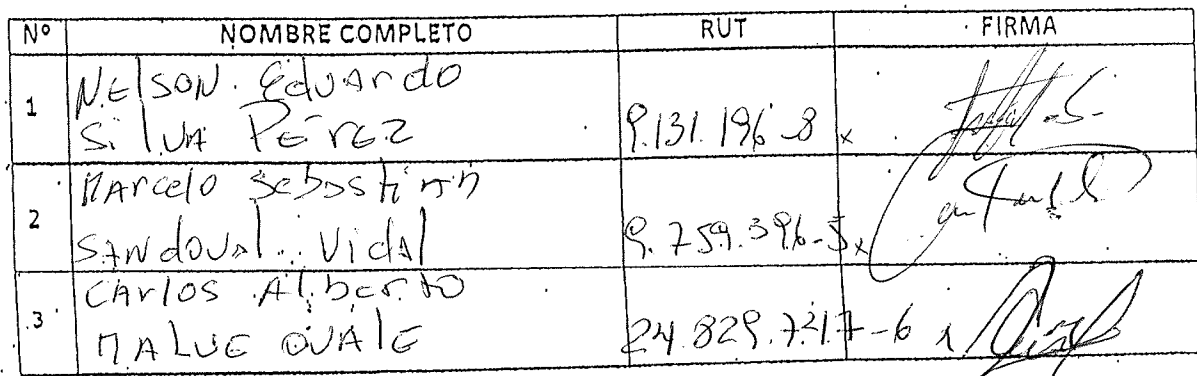 Nº NOMBRE COMPLETO RUT FIRMA
1 NELSON Eduardo
SiLVA PÉrez 9.131.196-8 x
2 MArcelo Sebastián
SANdoval Vidal 9.759.396-5 x
3 CArlos Alberto
MALUE OVALE 24.829.747-6 x